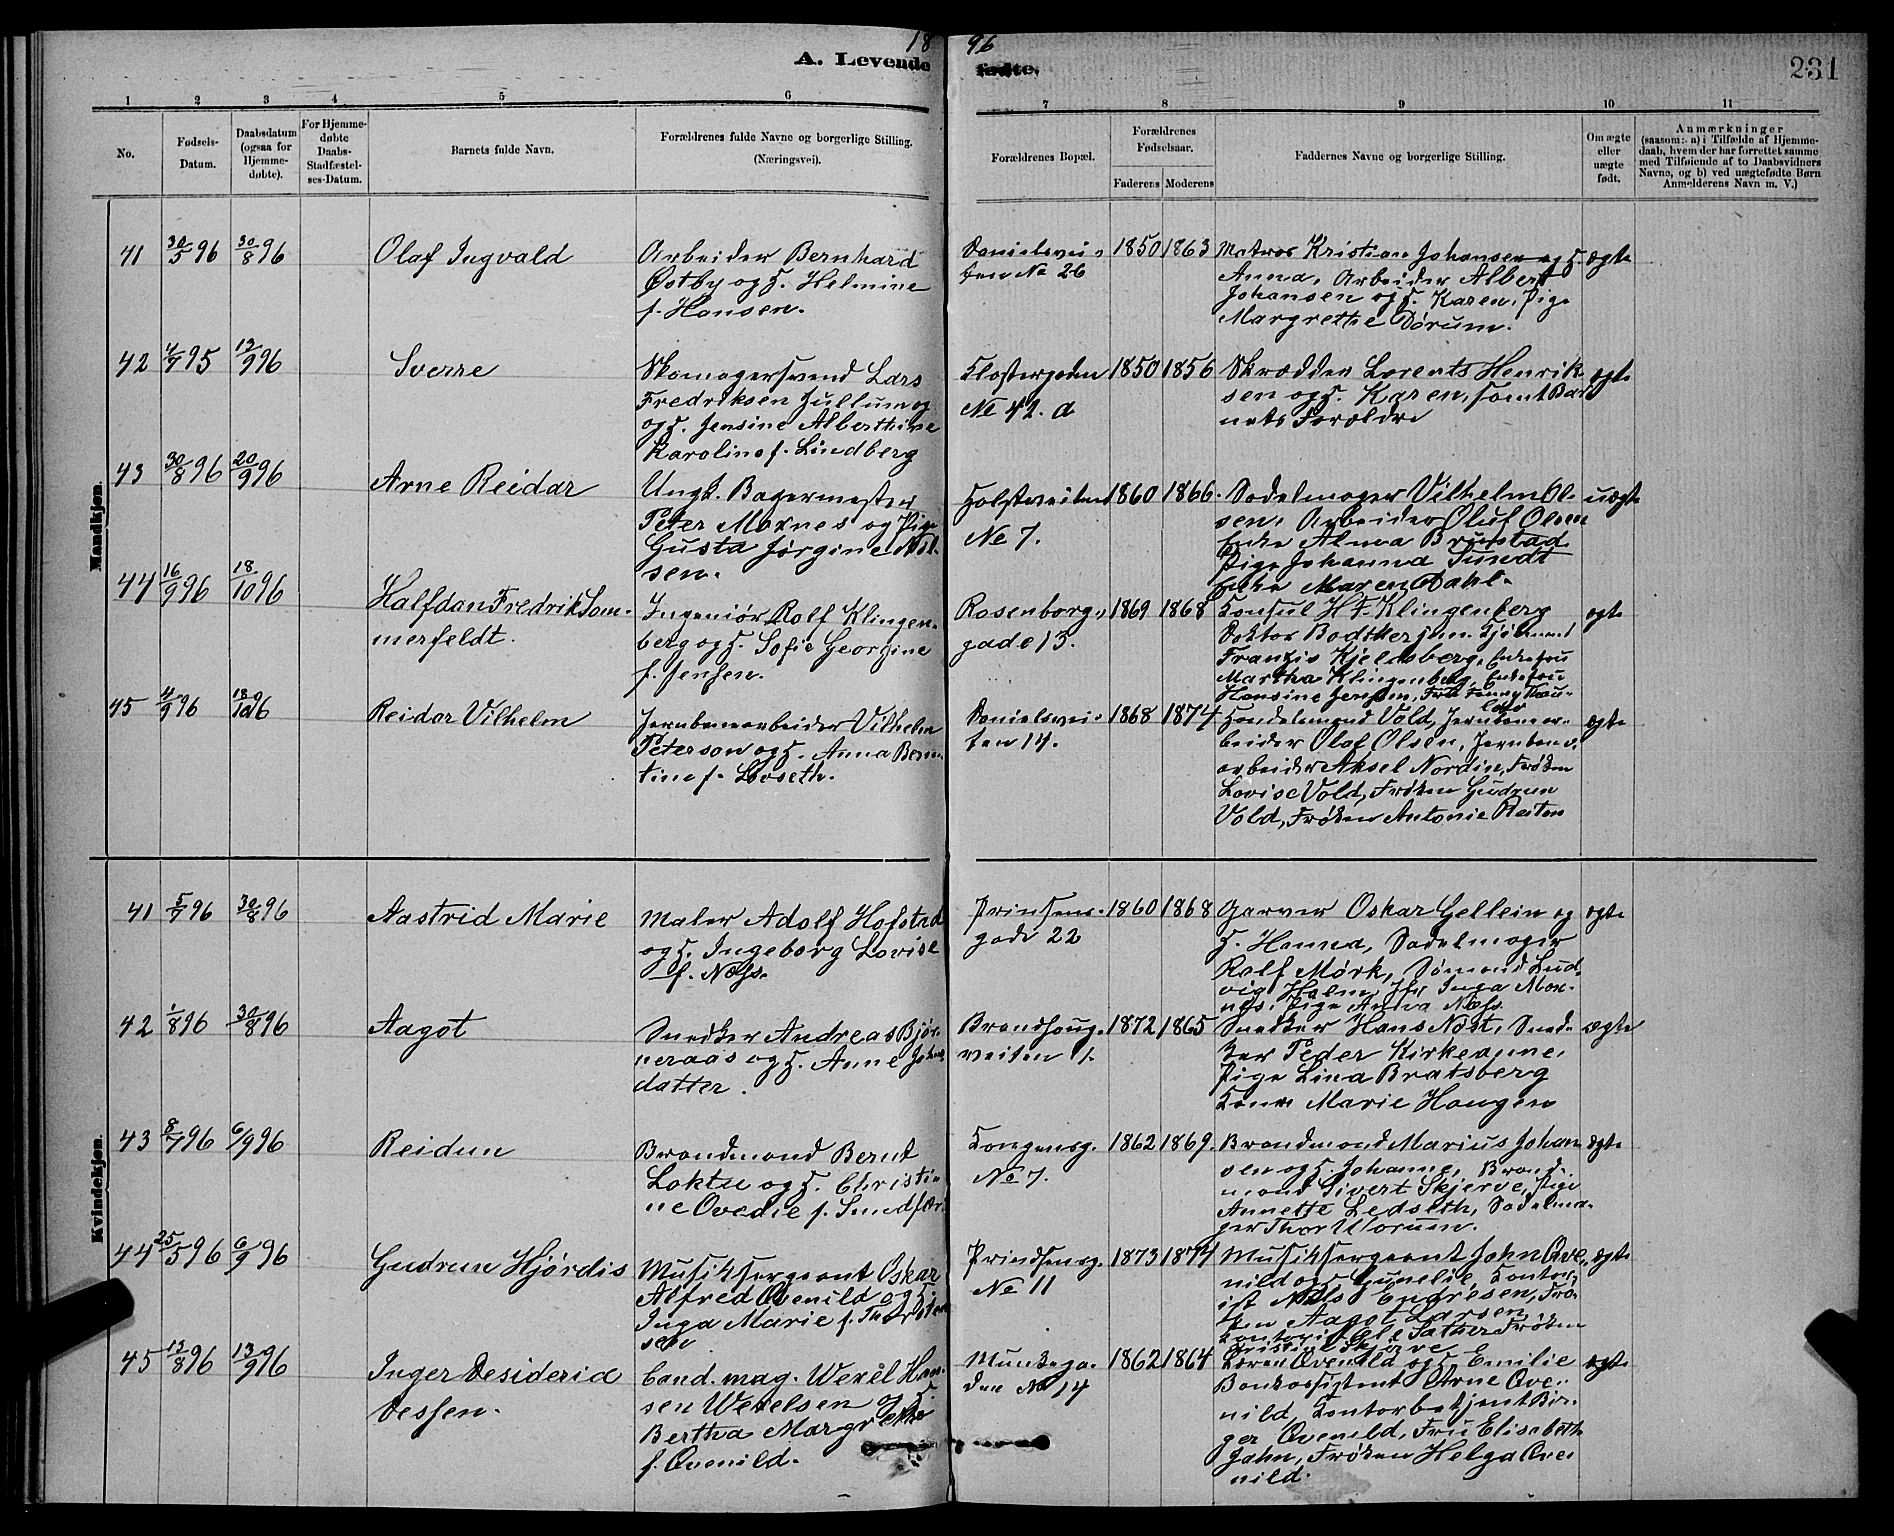 18 96
A. Levende fødte.
231
1 2 3 4 5 6 7 8 9 10 11
No.
Fødsels-
Datum.
Daabsdatum
(ogsaa for
Hjemme-
døbte).
For Hjemme-
døbte
Daabs-
Stadfæstel-
ses-Datum.
Barnets fulde Navn.
Forældrenes fulde Navne og borgerlige Stilling.
(Næringsvei).
Forældrenes Bopæl.
Forældrenes
Fødselsaar.
Faderens Moderens
Faddernes Navne og borgerlige Stilling.
Om ægte
eller
uægte
født.
Anmærkninger
(saasom: a) i Tilfælde af Hjemme-
daab, hvem der har forrettet samme
med Tilføiende af to Daabsvidners
Navne, og b) ved uægtefødte Børn
Anmelderens Navn m. V.)
Mandkjøn.
41 30/5 96 30/8 96
Olaf Ingvald
Arbeider Bernhard
Østby og H. Helmine
f. Hansen.
Danielsvei-
ten No 26
1850 1863
Matros Kristian Johansen og H.
Anna, Arbeider Albert
Johansen og H. Karen, Pige
Margrethe Dørum.
ægte
42 4/7 95 12/9 96
Sverre
Skomagersvend Lars
Fredriksen Hullum og
og H. Jensine Alberthine
Karoline f. Lindberg
Klostergaden
No 42. a
1850 1856
Skrædder Lorents Henrik
sen og H. Karen, samt Bar
nets Forældre
ægte
43 30/8 96 20/9 96
Arne Reidar
Ungk. Bagermester
Peter Moxnes og Pige
Gusta Jørgine Nil-
sen.
Holstveiten
No 7.
1860 1866.
Sadelmager Vilhelm Ol-
sen, Arbeider Oluf Olsen
Enke Alma Brustad
Pige Johanna Tundt
Enke Maren Dahl.
uægte
44 16/9 96 18/10 96
Halfdan Fredrik Som-
merfeldt.
Ingeniør Rolf Klingen-
berg og H. Sofie Georgine
f. Jenssen.
Rosenborg-
gade 13.
1869 1868
Konsul H. F. Klingenberg
Doktor Bødtker jun. Kjøbmand
Frantzis Kjeldsberg, Enkefru
Martha Klingenberg, Enkefru
Hansine Jenssen, Frk Fanny Thau-
low
ægte
45 4/9 96 18/10 96
Reidar Vilhelm
Jernbanearbeider Vilhelm
Peterson og H. Anna Bern-
tine f. Løvseth.
Danielsvei-
ten 14.
1868 1874
Handelsmand Vold, Jernbanear-
beider Olaf Olsen, Jernbane-
arbeider Aksel Nordin, Frøken
Lovise Vold, Frøken Gudrun
Vold, Frøken Antonie Reitan
ægte
Kvindekjøn.
41 5/7 96 30/8 96
Aastrid Marie
Maler Adolf Hofstad
og H. Ingeborg Lovise
f. Næss.
Prinsens-
gade 22
1860 1868
Garver Oskar Gellein og
H. Hanna, Sadelmager
Rolf Mørk, Sømand Lud-
vig Holm, Jfr. Inga Mox-
nes, Pige Næss
ægte
42 1/8 96 30/8 96
Aagot
Snedker Andreas Bjør-
neraas og H. Anne Johns
datter.
Brandhaug-
veiten 1.
1872 1865
Snedker Hans Nøst, Sned-
ker Peder Kirkeaune,
Pige Lina Bratsberg
Kone Marie Haugen
ægte
43 8/7 96 6/9 96
Reidun
Brandmand Bernt
Loktu og H. Christi-
ne Ovedie f. Sundfær
Kongensg.
No 7.
1862 1869.
Brandmand Marius Johan
sen og H. Johanne, Brand-
mand Sivert Skjerve, Pige
Annette Ledseth, Sadelma-
ger Thor Worum.
ægte
44 25/5 96 6/9 96
Gudrun Hjørdis
Musiksergeant Oskar
Alfred Qvenild og H.
Inga Marie f. Thorsten
sen
Prindsensg.
No 11
1873 1874
Musiksergeant John Qve-
nild og H. Gunelie, Kontor-
ist Nils Endresen, Frø-
ken Aagot Larsen,
Kontorist Ole Sather Frøken
Kristine Skjerve
ægte
45 12/8 96 13/9 96
Inger Desideria
Dessen.
Cand. mag. Wexel Han-
sen Wexelsen og H.
Bertha Margrethe
f. Qvenild.
Munkega-
den No 14
1862 1864
Lærer Qvenild og H. Emilie
Bankassistent Arne Qve-
nild, Kontorbetjent Bir-
ger Qvenild, Fru Elisabeth
Jahn, Frøken Helga Qve-
nild.
ægte